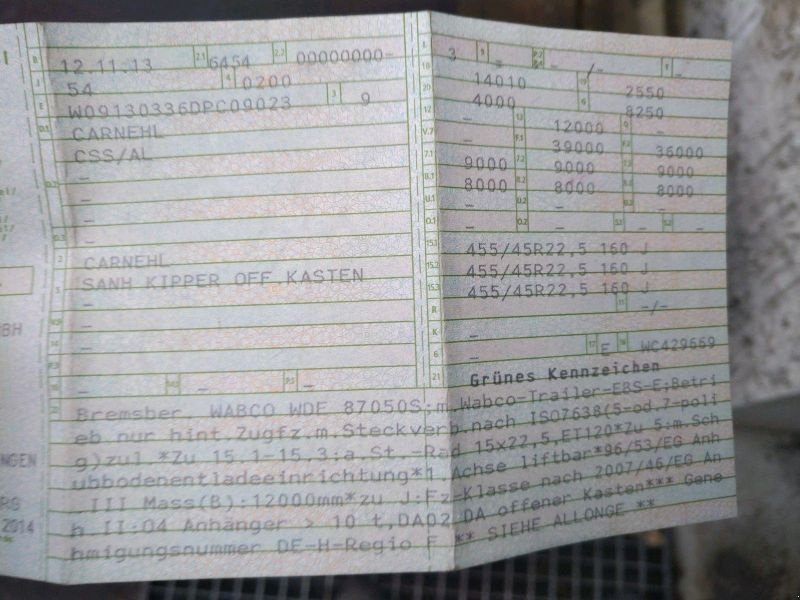 B 12.11.13 2.1 6454 2.2 00000000-
J 54 4 0200
E W09130336DPC09023 3 9
D.1 CARNEHL
CSS/AL
D.2 -
-
D.3 -
2 CARNEHL
5 SANH KIPPER OFF KASTEN
-
V.9 -
14 -
P.3 -
L 3 9 - P.2 P.4 -/- T -
18 14010 19 2550
20 4000 G 8250
12 - 13 12000 Q -
V.7 - F.1 39000 F.2 36000
7.1 9000 7.2 9000 7.3 9000
8.1 8000 8.2 8000 8.3 8000
U.1 - U.2 - U.3 -
O.1 - O.2 - S.1 - S.2 -
15.1 455/45R22,5 160 J
15.2 455/45R22,5 160 J
15.3 455/45R22,5 160 J
R 11 -/-
K -
6 - 17 E 16 WC429669
21 Grünes Kennzeichen
Bremsber. WABCO WDF 87050S;m.Wabco-Trailer-EBS-E;Betri
eb nur hint.Zugfz.m.Steckverb.nach ISO7638(5-od.7-poli
g)zul *Zu 15.1-15.3:a.St.-Rad 15x22,5,ET120*Zu 5:m.Sch
ubbodenentladeeinrichtung*1.Achse liftbar*96/53/EG Anh
III Mass(B):12000mm*zu J:Fz-Klasse nach 2007/46/EG An
h II:04 Anhänger > 10 t,DA02 DA offener Kasten*** Gene
hmigungsnummer DE-H-Regio F ** SIEHE ALLONGE **
BH
NGEN
RG
2014